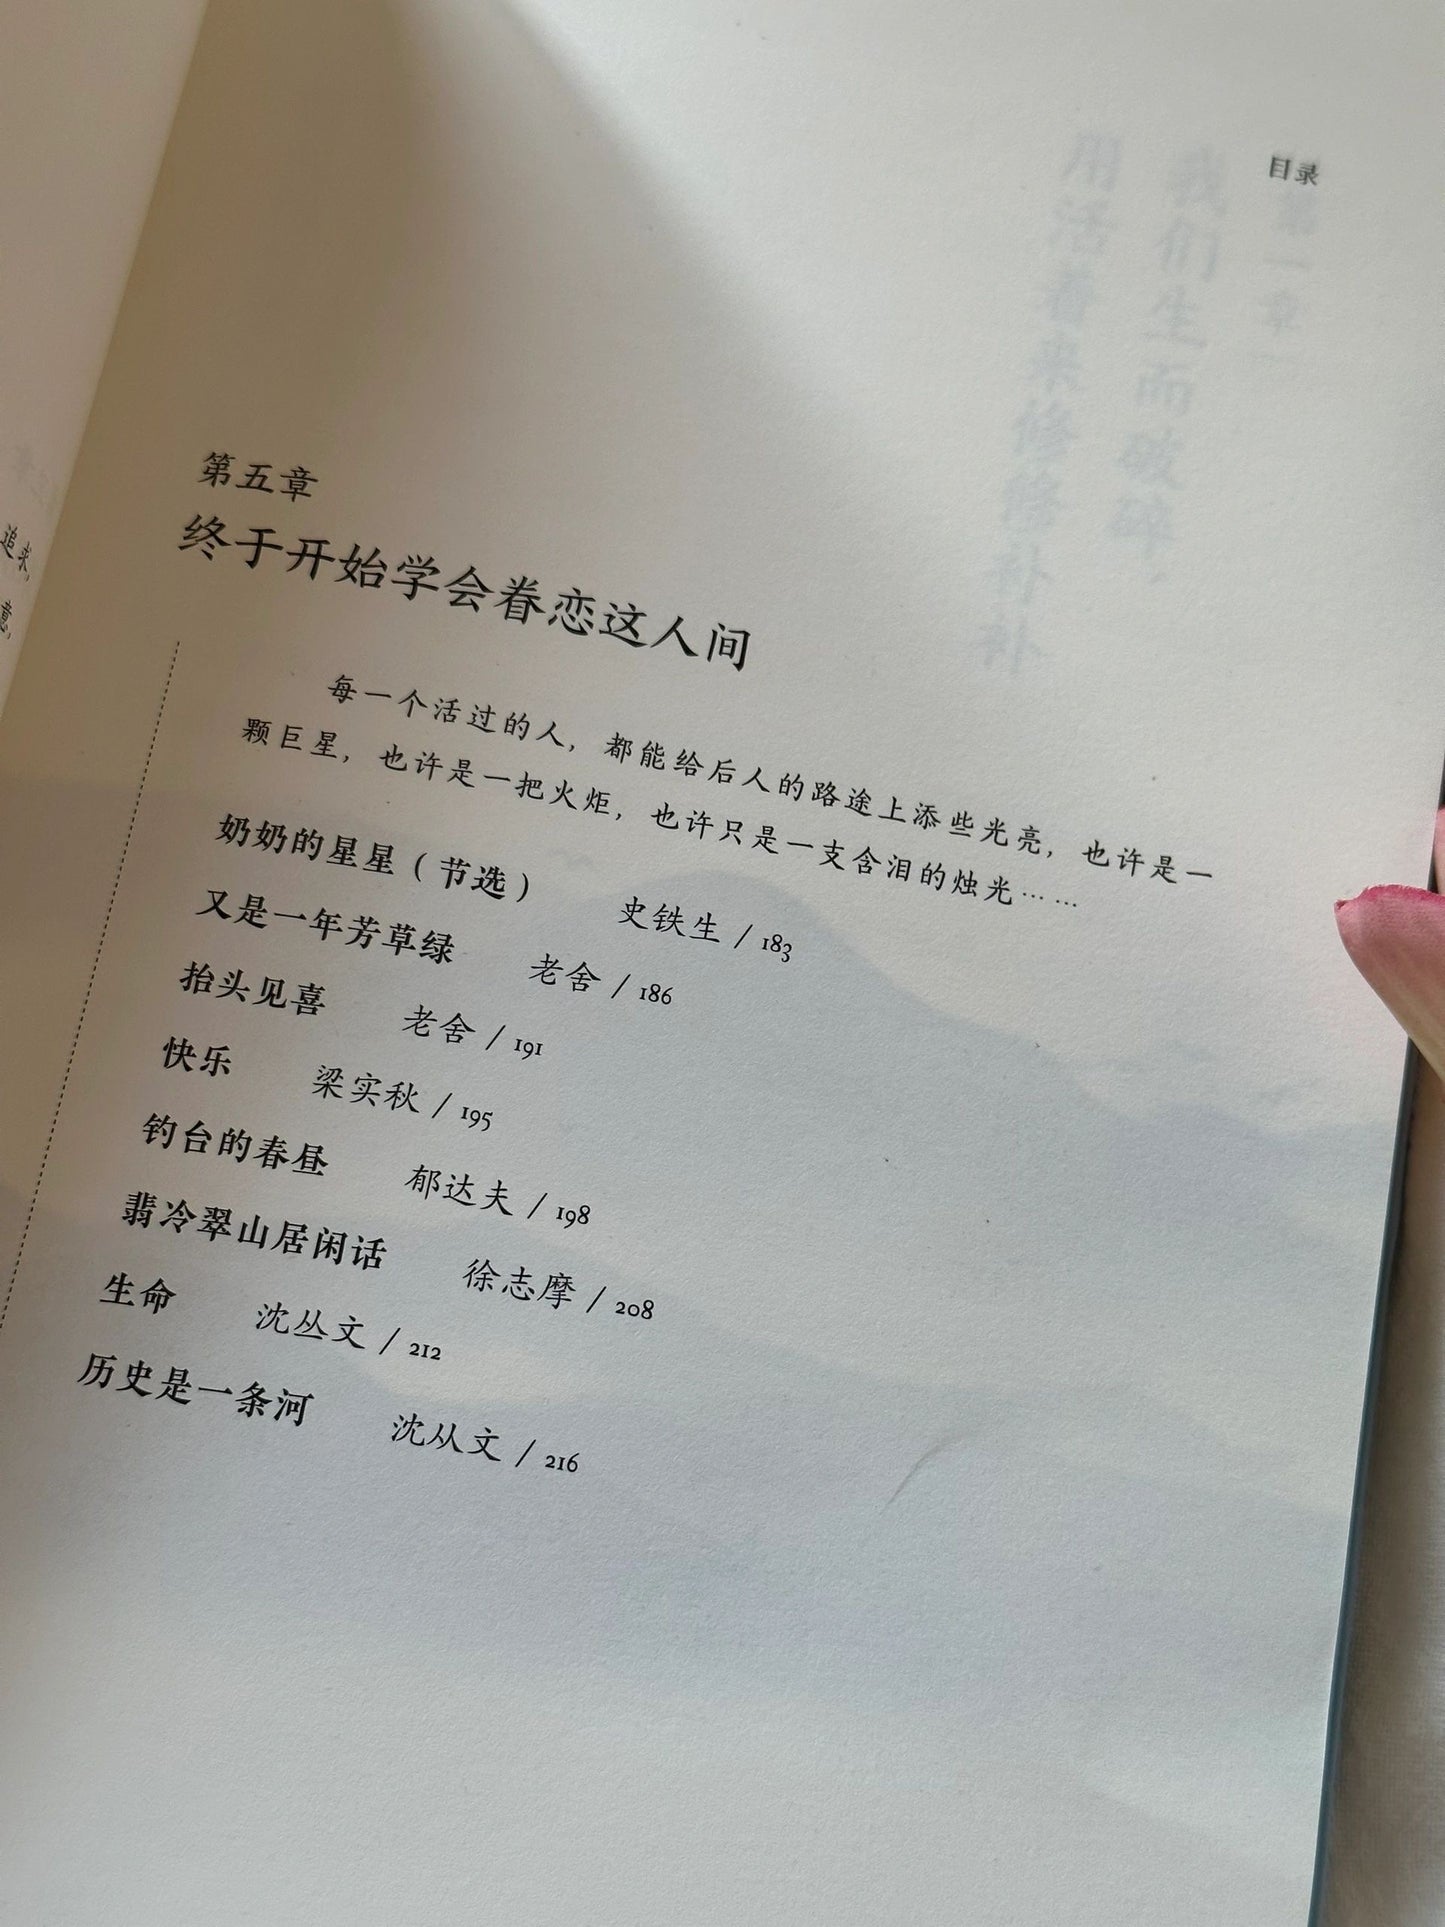 目录
第一章
我们生而破碎，
用活着来修修补补
第五章
终于开始学会眷恋这人间
每一个活过的人，都能给后人的路途上添些光亮，也许是一
颗巨星，也许是一把火炬，也许只是一支含泪的烛光……
奶奶的星星（节选） 史铁生 / 183
又是一年芳草绿 老舍 / 186
抬头见喜 老舍 / 191
快乐 梁实秋 / 195
钓台的春昼 郁达夫 / 198
翡冷翠山居闲话 徐志摩 / 208
生命 沈丛文 / 212
历史是一条河 沈从文 / 216
追求，
意，